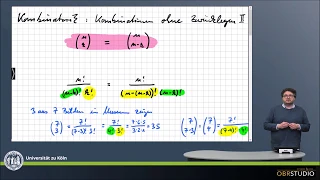 Kombinatorik : Kombinationen ohne Zurücklegen II
(n k) = (n n-k)
n! / (n-k)! k! = n! / (n-(n-k))! (n-k)!
3 aus 7 Zahlen in Menge
(7 3) = 7! / (7-3)! 3! = 7! / 4! 3! = 7·6·5 / 3·2·1 = 35
(7 7-3) = (7 4) = 7! / (7-4)! 4!
Universität zu Köln
OBRSTUDIO